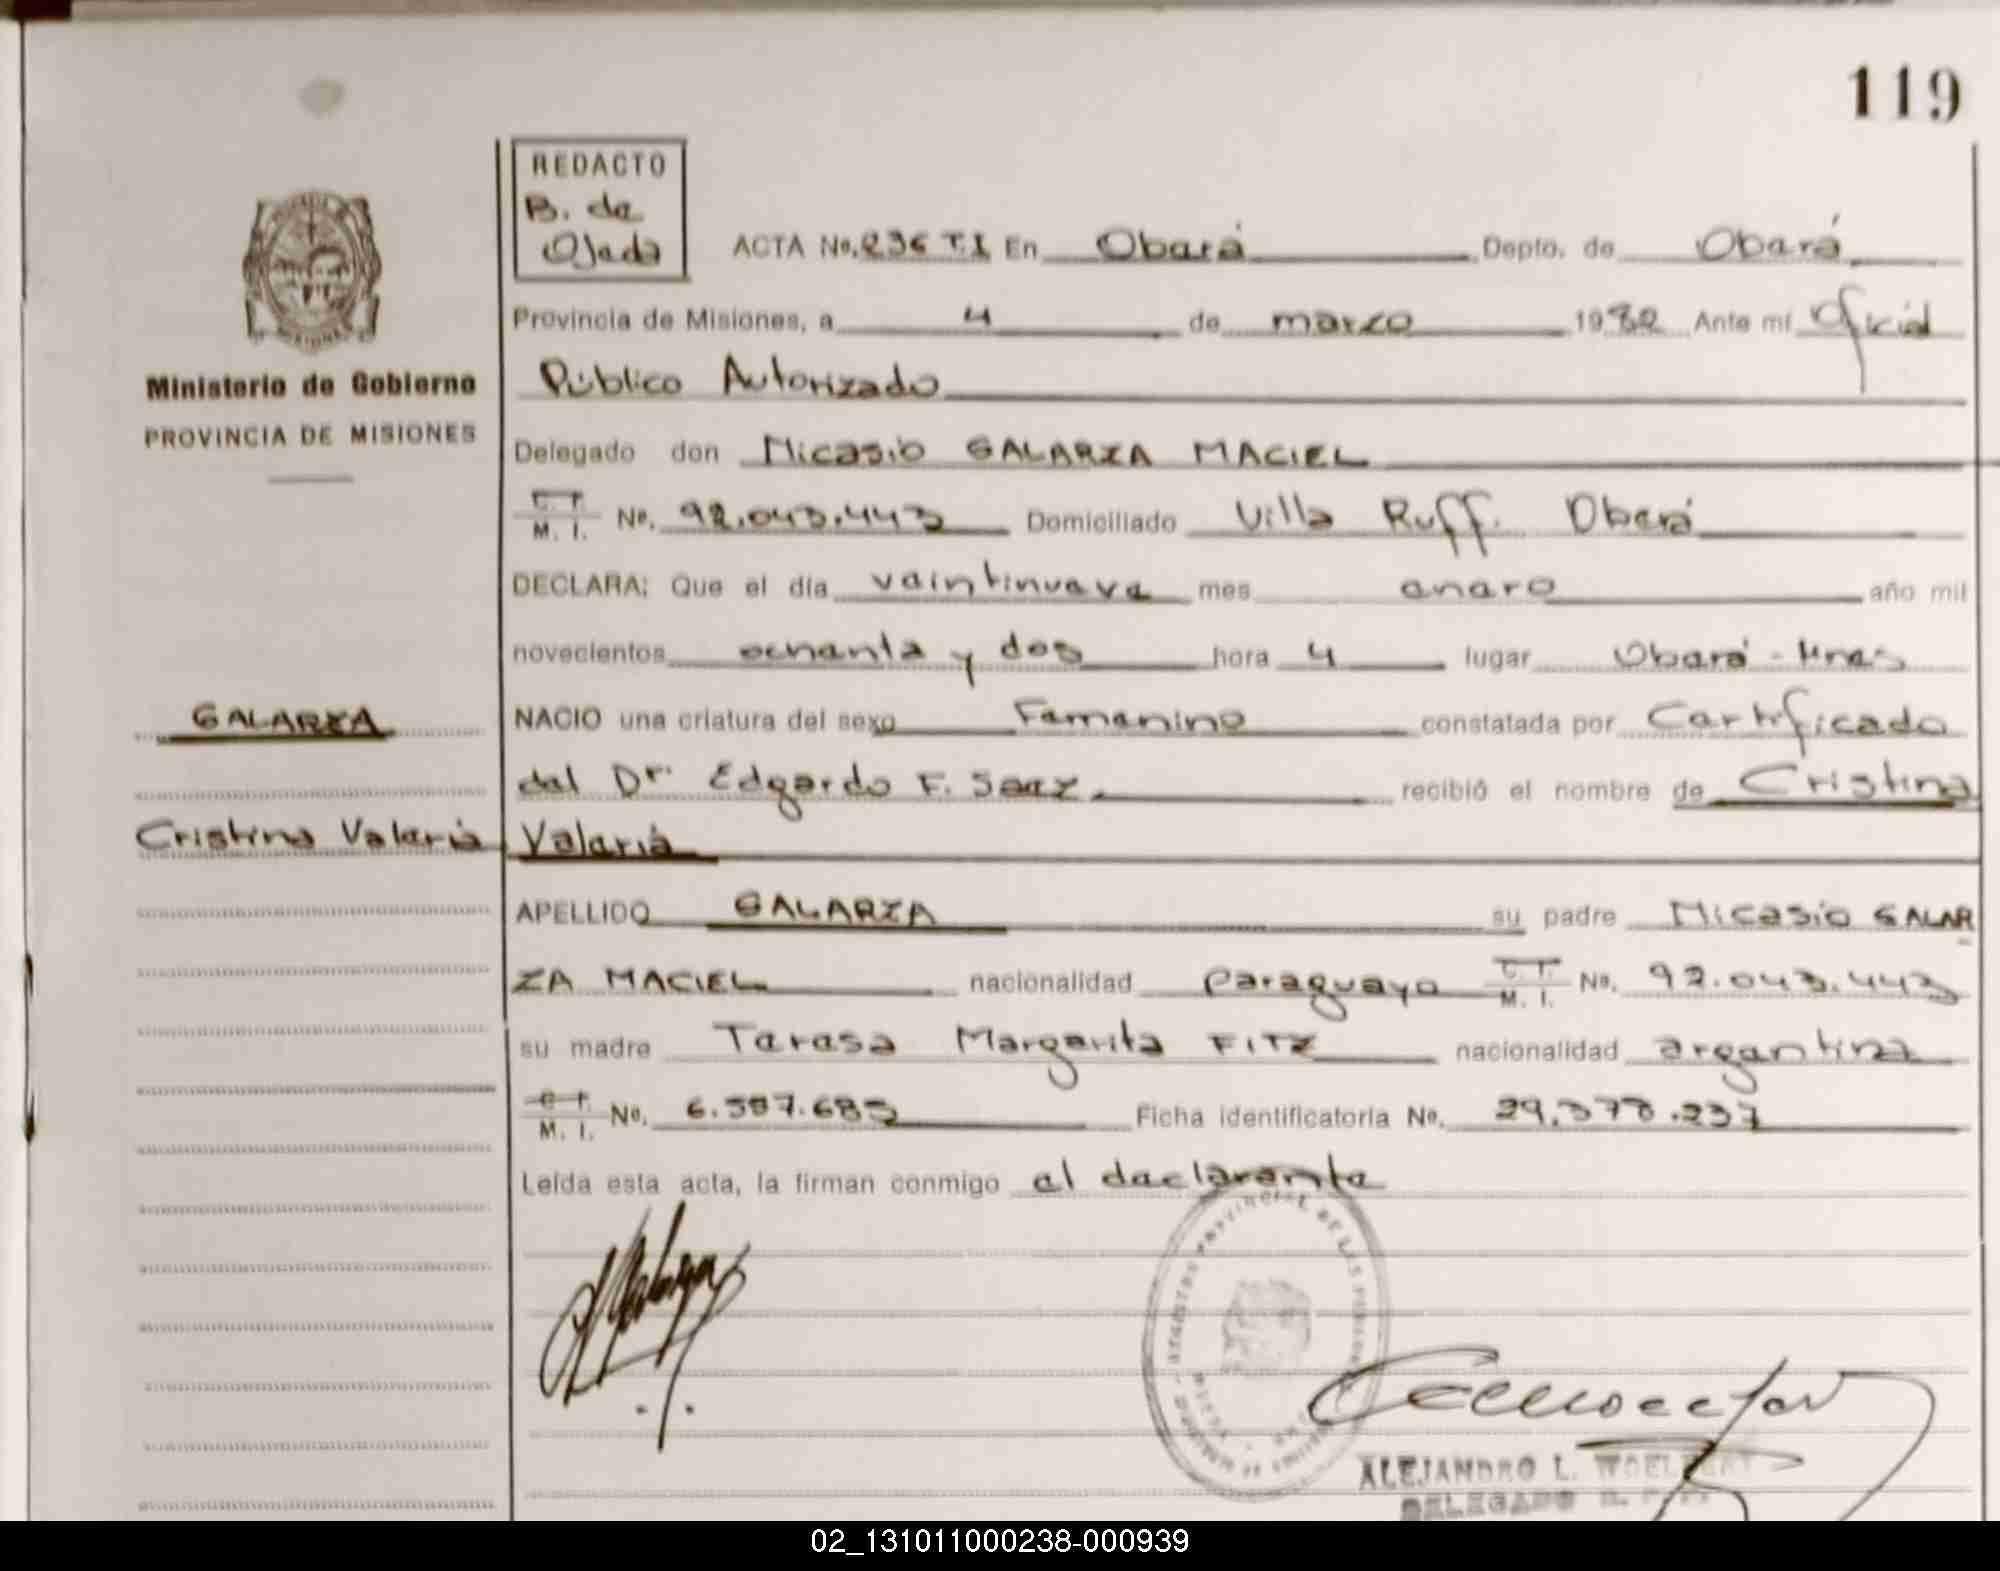 119
REDACTO
B. de
Ojeda
ACTA No. 236 T.I En Oberá Depto. de Oberá
Provincia de Misiones, a 4 de marzo 1982 Ante mí Oficial
Público Autorizado
Ministerio de Gobierno
PROVINCIA DE MISIONES
Delegado don Nicasio GALARZA MACIEL
C. I.
M. I. No. 92.043.443 Domiciliado Villa Ruff. Oberá
DECLARA: Que el día veintinueve mes enero año mil
novecientos ochenta y dos hora 4 lugar Oberá - Mnes
GALARZA
NACIO una criatura del sexo Femenino constatada por Certificado
del Dr. Edgardo F. Saez recibió el nombre de Cristina
Cristina Valeria
Valeria
APELLIDO GALARZA su padre Nicasio GALAR
ZA MACIEL nacionalidad paraguaya C. I. M. I. No. 92.043.443
su madre Teresa Margarita FITZ nacionalidad argentina
C. I.
M. I. No. 6.587.685 Ficha identificatoria No. 29.378.237
Leída esta acta, la firman conmigo el declarante
REGISTRO PROVINCIAL DE LAS PERSONAS
ALEJANDRO L.
DELEGADO
02_131011000238-000939